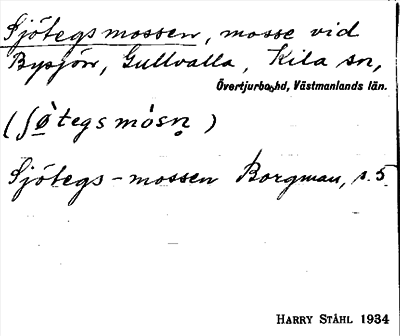 Sjötegsmossen, mosse vid
Bysjön, Gullvalla, Kila sn,
Övertjurbo hd, Västmanlands län.
(ʃø̀tegsmósn̥)
Sjötegs-mossen Borgman, s. 5.
HARRY STÅHL 1934